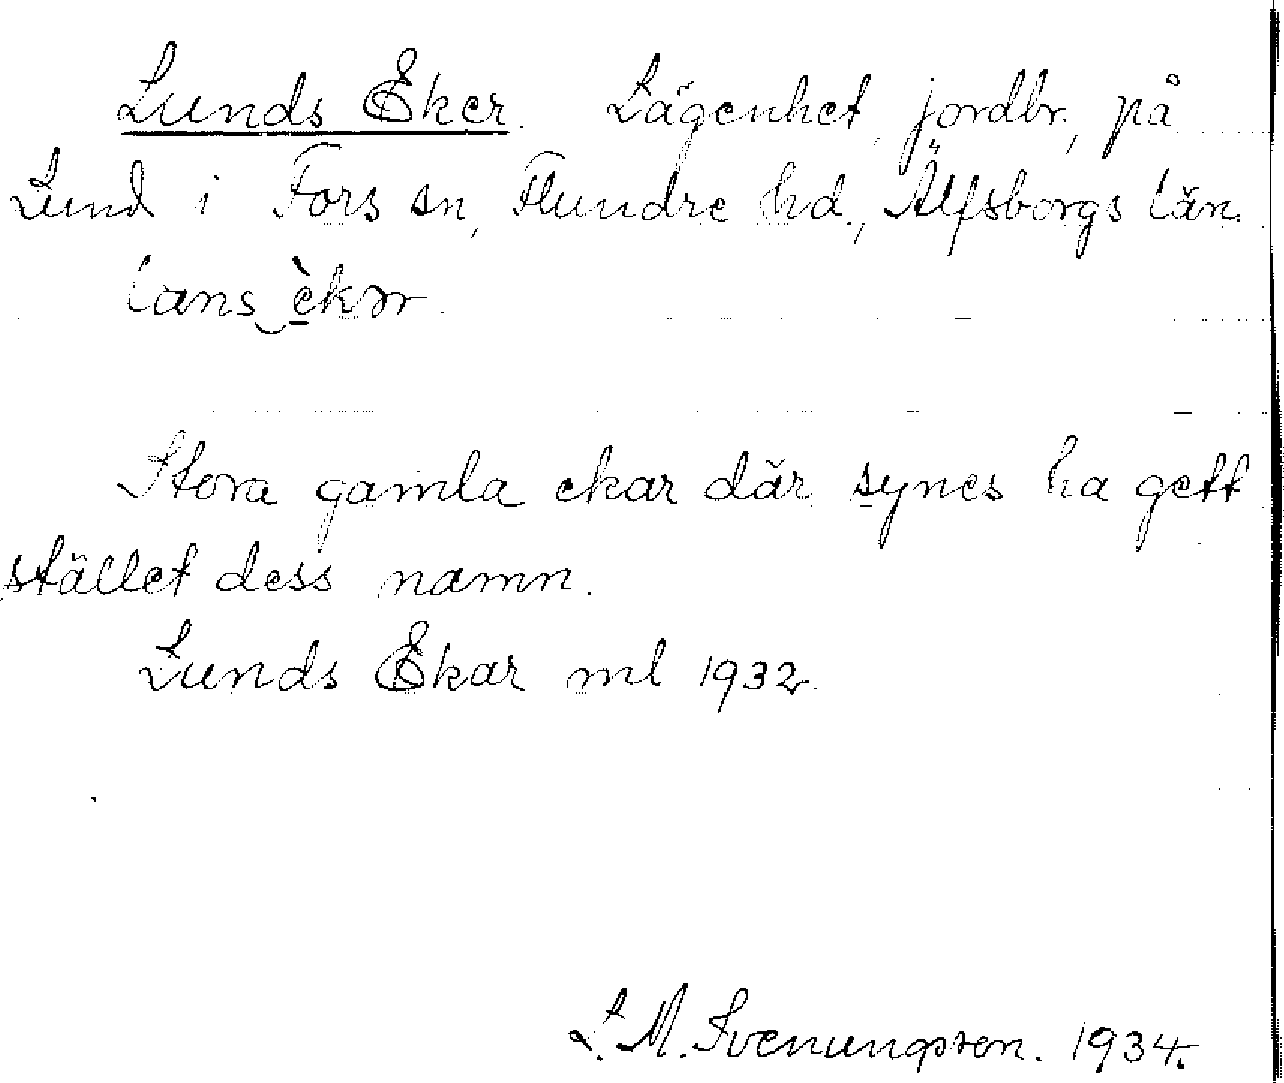 Lunds Eker. Lägenhet, jordbr., på
Lund i Fors sn, Flundre hd., Älfsborgs län.
lans èkər.
Stora gamla ekar där synes ha gett
stället dess namn.
Lunds Ekar ml 1932.
L. M. Svenungsson. 1934.